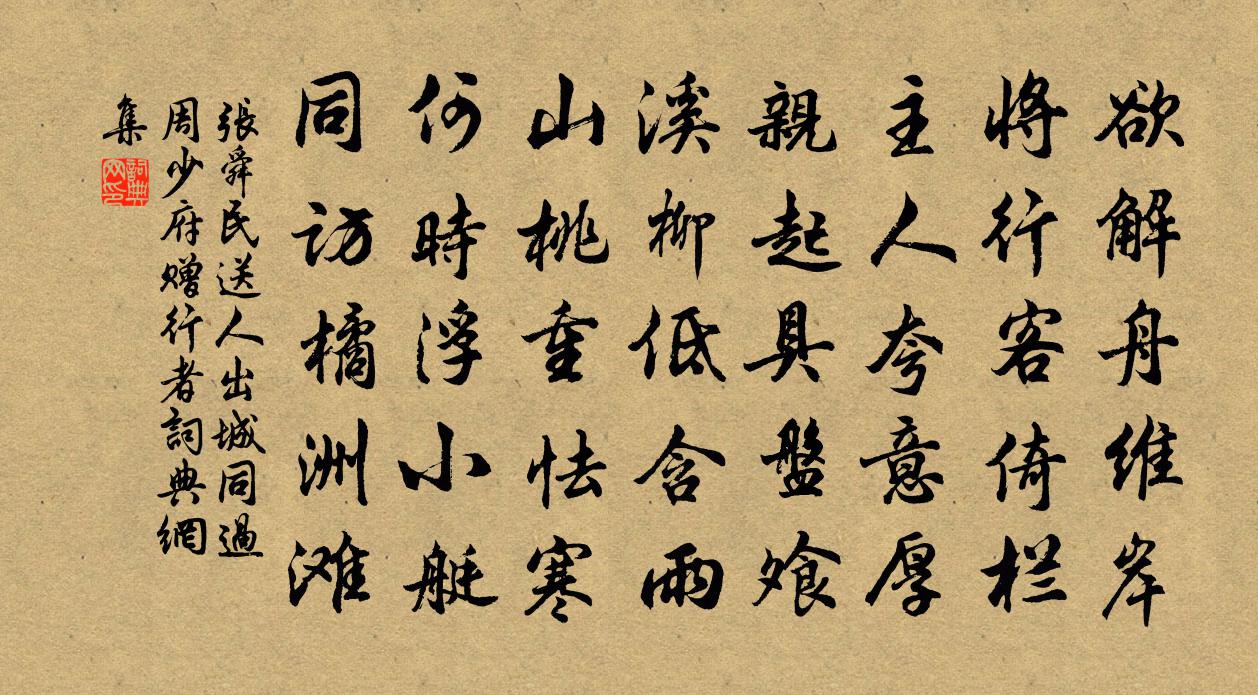 欲解舟維岸
將行客倚栏
主人夸意厚
親起具盤飧
溪柳低含雨
山桃重怯寒
何時浮小艇
同访橘洲滩
張舜民送人出城同過
周少府赠行者詞典網
集
詞典网印